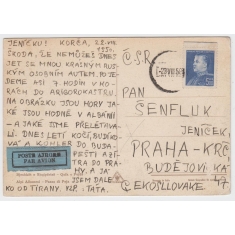 JENÍČKU! KORČA, 22.VII.
1950.
ŠKODA, ŽE NEMŮŽEŠ DNES
JET SE MNOU KRÁSNÝM RUS-
KÝM OSOBNÍM AUTEM. POJE-
DEME ASI 7 HODIN V HORÁCH
DO ARGIROKASTRU.
NA OBRÁZKU JSOU HORY JAKÉ
JSOU HODNĚ V ALBÁNII
– A JAKÉ JSME PŘELÉTÁVALI.
DNE! LETÍ KOČÍ, BUDÍK
A KOHLER DO BUDA-
PEŠTI A ZÍ-
TRA DO PRA-
HY. A JÁ
JSEM DALE-
KO OD TIRANY. VZP. TATA.
POSTE AJRORE
PAR AVION
Č.S.R.
PAN
ŠENFLUK
JENÍČEK,
PRAHA-KRČ
BUDĚJOVICKÁ
47
ČEKOSLLOVAKE